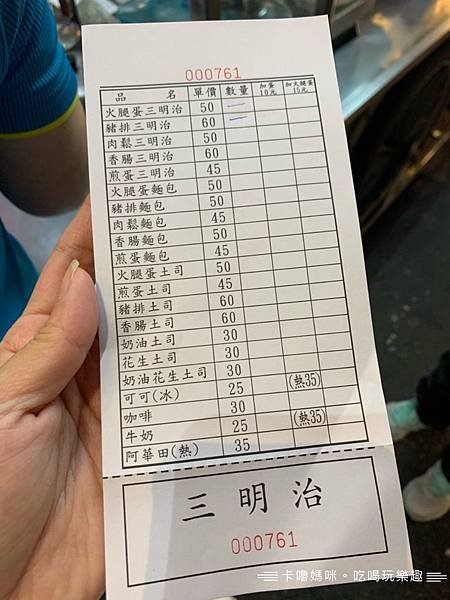 000761
品 名 單價 數量 加蛋10元 加火腿蛋15元
火腿蛋三明治 50 一
豬排三明治 60 一
肉鬆三明治 50
香腸三明治 60
煎蛋三明治 45
火腿蛋麵包 50
豬排麵包 50
肉鬆麵包 45
香腸麵包 50
煎蛋麵包 45
火腿蛋土司 50
煎蛋土司 45
豬排土司 60
香腸土司 60
奶油土司 30
花生土司 30
奶油花生土司 30
可可(冰) 25 (熱35)
咖啡 30
牛奶 25 (熱35)
阿華田(熱) 35
三明治
000761
卡嚕媽咪。吃喝玩樂趣